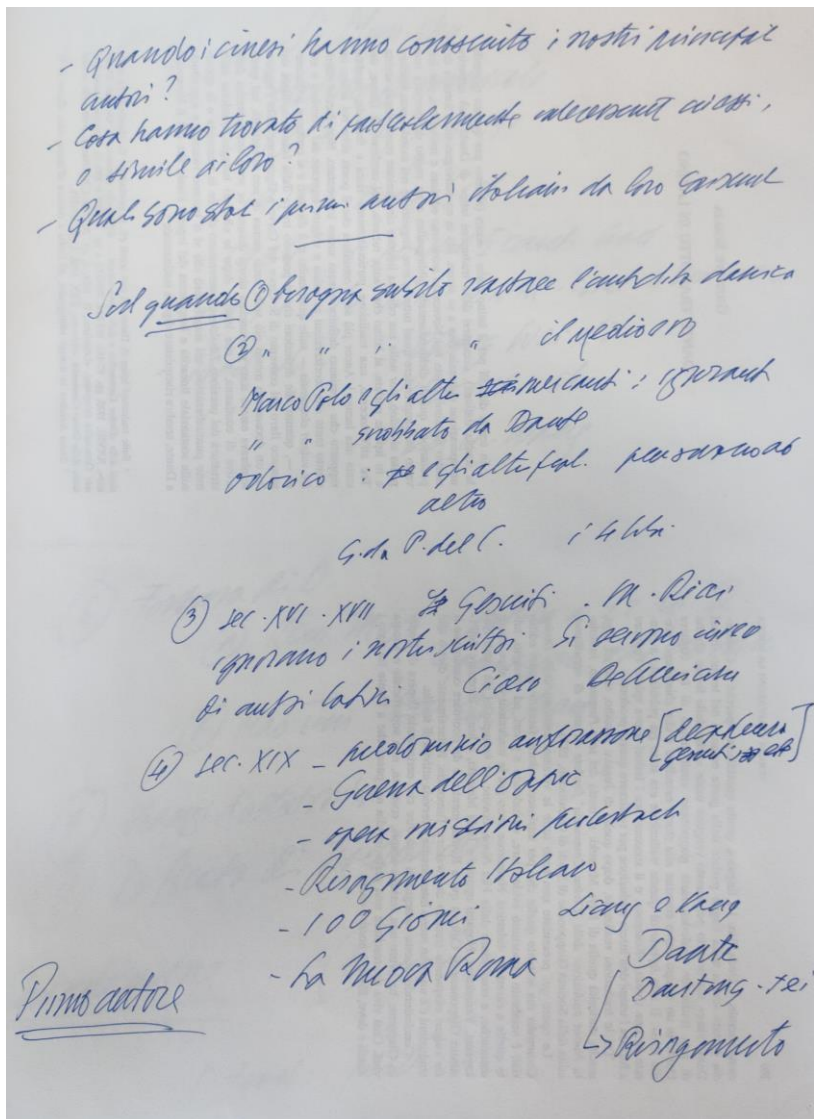 - Quando i cinesi hanno conosciuto i nostri principali
autori?
- Cosa hanno trovato di particolarmente
o simile ai loro?
- Quali sono stati i primi autori italiani da loro
Sul quando ① bisogna subito l'antichità classica
② " " " " il medioevo
Marco Polo e gli altri mercanti: ignoranti
" " snobbato da Dante
Odorico: e gli altri pensavano ad
altro
G. da P. del C. i 4 libri
③ sec. XVI. XVII Gesuiti. M. Ricci
ignorano i nostri scrittori Si servono
di autori latini De Amicitia
④ sec. XIX - predominio anglosassone [decadenza
gesuiti
- Guerra dell'oppio
- opera missioni protestanti
- Risorgimento Italiano
- 100 Giorni Liang e Kang
- La Nuova Roma Dante
Primo autore
Risorgimento